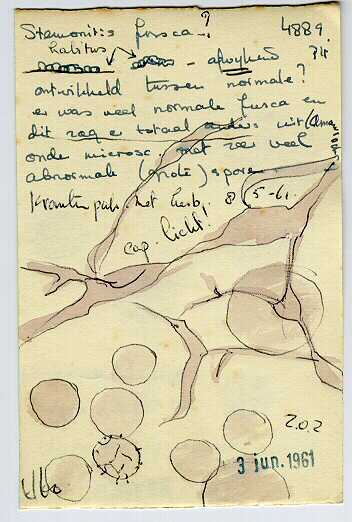 Stemonitis fusca - ?
4889.
habitus
- afwijkend
ontwikkeld tussen normale?
er was veel normale fusca en
dit zag er totaal anders uit
onde microsc. met zeer veel
abnormale (grote) spore
Krantenpap. het herb. 8 5-61.
cap. licht!
202
3 jun. 1961